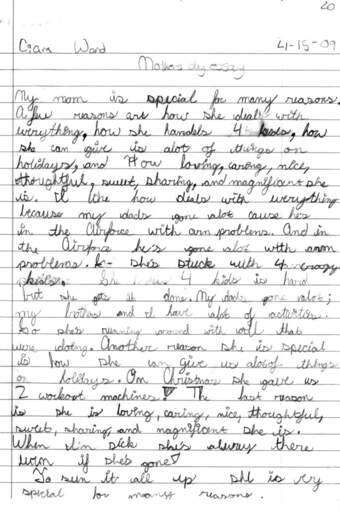 20
Ciara Ward 4-15-09
Mothers dy essay
My mom is special for many reasons.
A few reasons are how she deals with
everything, how she handels 4 kids, how
she can give is alot of things on
holidays, and How loving, caring, nice,
thoughtful, sweet, sharing, and magnificent she
is. I like how deals with everything
because my dads gone alot cause hes
in the Airforce with arm problems. And in
the Airforce he's gone alot with arm
problems. she's stuck with 4 crazy
kids. She 4 kids is hard
but she gets it done. My dads gone alot;
my and I have alot of activities.
So she's running around with all that
were doing. Another reason she is special
is how she can give us alot of things
on holidays. On Christmas she gave us
2 workout machines! The last reason
is she is loving, caring, nice, thoughtful,
sweet, sharing, and magnificent she is.
When I'm sick she's always there
even if she's gone!
So sum it all up she is very
special for many reasons.